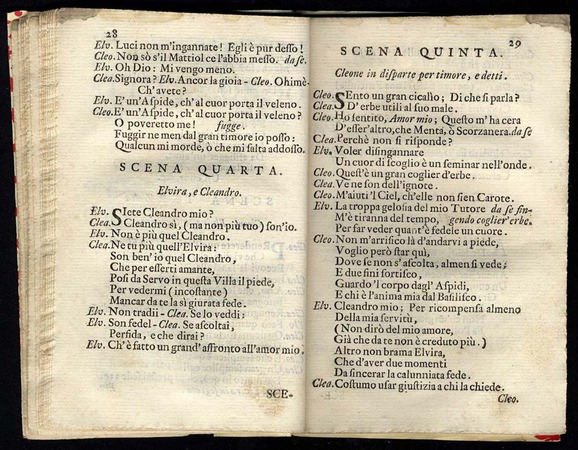 28
Elv. Luci non m'ingannate! Egli è pur desso!
Cleo. Non sò s'il Mattiol ce l'abbia messo. da se.
Elv. Oh Dio: Mi vengo meno.
Clea. Signora? Elv. Ancor la gioia - Cleo. Ohimè
Ch'avete?
Elv. E' un'Aspide, ch'al cuor porta il veleno.
Cleo. E' un'Aspide, ch'al cuor porta il veleno?
O poveretto me! fugge.
Fuggir ne men dal gran timore io posso:
Qualcun mi morde, ò che mi salta addosso.
SCENA QUARTA.
Elvira, e Cleandro.
Elv. SIete Cleandro mio?
Clea. Cleandro sì, (ma non più tuo) son'io.
Elv. Non è più quel Cleandro.
Clea. Ne tu più quell'Elvira:
Son ben' io quel Cleandro,
Che per esserti amante,
Posi da Servo in questa Villa il piede,
Per vedermi (incostante)
Mancar da te la sì giurata fede.
Elv. Non tradii - Clea. Se lo veddi:
Elv. Son fedel - Clea. Se ascoltai,
Perfida, e che dirai?
Elv. Ch'è fatto un grand'affronto all'amor mio.
SCE-
29
SCENA QUINTA.
Cleone in disparte per timore, e detti.
Cleo. SEnto un gran cicalio; Di che si parla?
Clea. D'erbe utili al suo male.
Cleo. Hò sentito, Amor mio; Questo m'ha cera
D'esser'altro, che Menta, ò Scorzanera. da se
Clea. Perchè non si risponde?
Elv. Voler disingannare
Un cuor di scoglio è un seminar nell'onde.
Cleo. Quest'è un gran coglier d'erbe.
Clea. Ve ne son dell'ignote.
Cleo. M'aiuti 'l Ciel, ch'elle non sien Carote.
Elv. La troppa gelosia del mio Tutore da se fin-
M'è tiranna del tempo, gendo coglier'erbe.
Per far veder quant'è fedele un cuore.
Cleo. Non m'arrisico là d'andarvi a piede,
Voglio però star quì,
Dove se non s'ascolta, almen si vede;
E due fini sortisco,
Guardo 'l corpo dagl' Aspidi,
E chi è l'anima mia dal Basilisco.
Elv. Cleandro mio; Per ricompensa almeno
Della mia servitù,
(Non dirò del mio amore,
Già che da te non è creduto più.)
Altro non brama Elvira,
Che d'aver due momenti
Da sincerar la calunniata fede.
Clea. Costumo usar giustizia a chi la chiede.
Cleo.